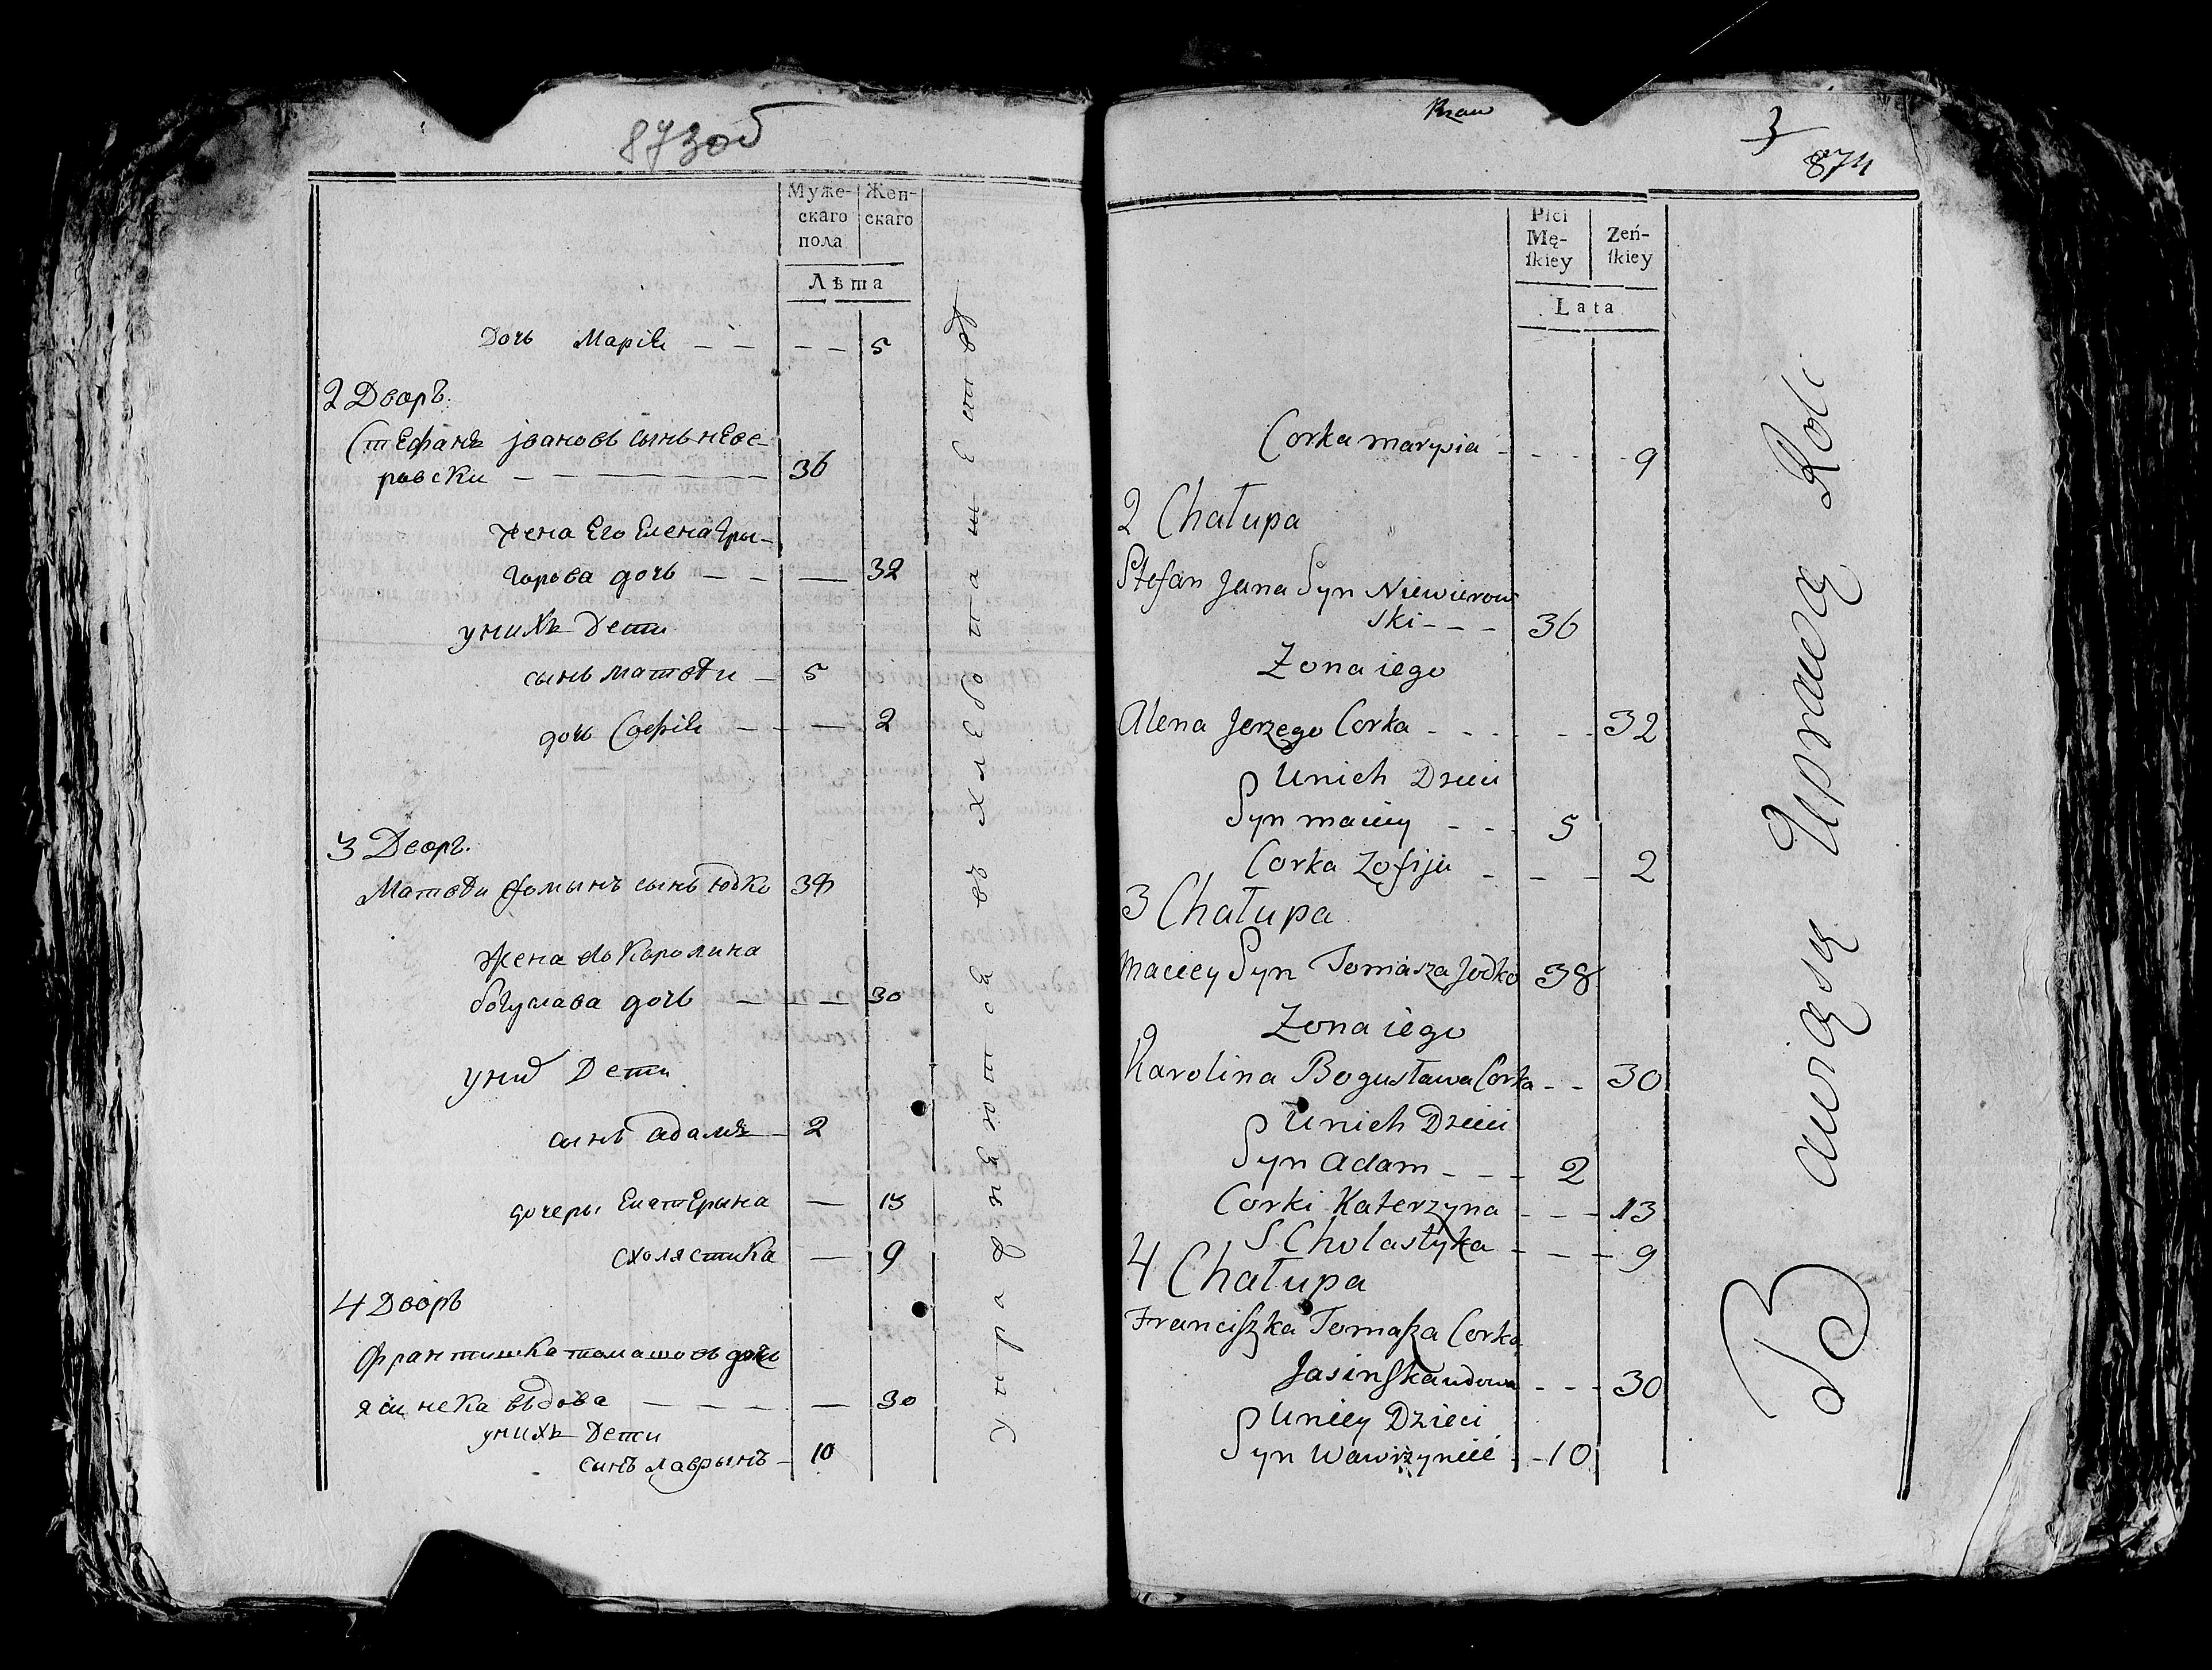 873об
Муже-
скаго
пола
Жен-
скаго
Лѣта
Дочь Маріѣ — — — — 5
2 Дворъ.
Стефанъ јвановъ сынъ нЕве-
ровски — — — — — — 36
жена Его Елена Гры-
горова дочь — — — 32
унихъ Дети
сынъ матвѣи — 5
дочь Софіѣ — — — 2
3 Дворъ.
Матвѣи фоминъ сынъ Юдко 38
Жена Каролина
богуслава дочь — — 30
Дети
сынъ адамъ — 2
дочеры Екатерына — 13
схолястика — 9
4 Дворъ
Франтишка томашовъ дочь
въдова — — — — — 30
унихъ Дети
сынъ лаврынъ — 10
Rzaw
3
874
Płci
Mę-
ſkiey
Zeń-
ſkiey
Lata
Corka marysia - - - - 9
2 Chałupa
Stefan Jana Syn Niewierow
ski - - - 36
Zona iego
Alena Jerzego Corka - - - - - 32
Unich Dzieci
Syn maciey - - 5
Corka Zofija - - - 2
3 Chałupa
Maciey Syn Tomasza Jodko 38
Zona iego
Karolina Bogusława Corka - - 30
Unich Dzieci
Syn Adam - - - 2
Corki Katerzyna - - - 13
SCholastyka - - - 9
4 Chałupa
Franciſzka Tomaſza Corka
Jasinſka udowa - - - 30
Uniey Dzieci
Syn Wawrzyniec - - 10
Bawią się Uprawą Roli